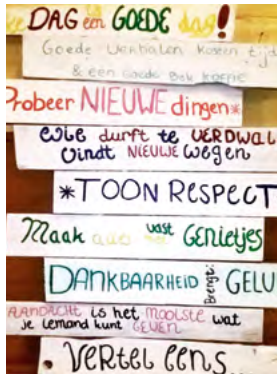 DAG een GOEDE dag!
Goede verhalen kosten tijd
& een goede bak koffie
Probeer NIEUWE dingen*
wie durft te VERDWAL
vindt NIEUWE wegen
*TOON RESPECT
Maak vast GENIETJES
DANKBAARHEID Brengt: GELU
AANDACHT is het MOOISTE wat
je iemand kunt GEVEN
* VERTEL EENS...